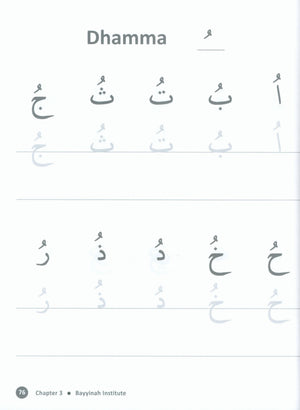 Dhamma ـُ
أُ بُ تُ ثُ جُ
أُ بُ تُ ثُ جُ
حُ خُ دُ ذُ رُ
حُ خُ دُ ذُ رُ
76 Chapter 3 ● Bayyinah Institute